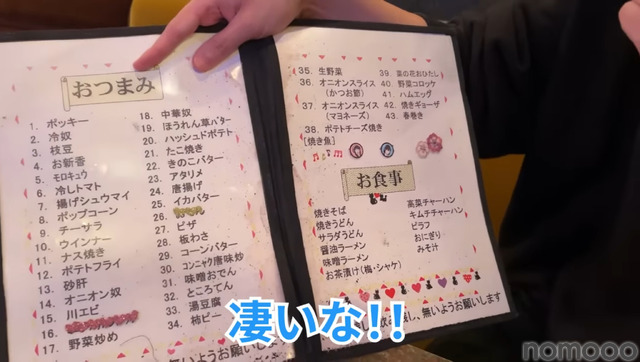 おつまみ
1. ポッキー
2. 冷奴
3. 枝豆
4. お新香
5. モロキュウ
6. 冷しトマト
7. 揚げシュウマイ
8. ポップコーン
9. チーサラ
10. ウインナー
11. ナス焼き
12. ポテトフライ
13. 砂肝
14. オニオン奴
15. 川エビ
16.
17. 野菜炒め
18. 中華奴
19. ほうれん草バター
20. ハッシュドポテト
21. たこ焼き
22. きのこバター
23. アタリメ
24. 唐揚げ
25. イカバター
26.
27. ピザ
28. 板わさ
29. コーンバター
30. コンニャク唐味炒
31. 味噌おでん
32. ところてん
33. 湯豆腐
34. 柿ピー
いようお願いします
35. 生野菜
36. オニオンスライス
(かつお節)
37. オニオンスライス
(マヨネーズ)
38. ポテトチーズ焼き
[焼き魚]
39. 菜の花おひたし
40. 野菜コロッケ
41. ハムエッグ
42. 焼きギョーザ
43. 春巻き
お食事
焼きそば
焼きうどん
サラダうどん
醤油ラーメン
味噌ラーメン
お茶漬け(梅・シャケ)
高菜チャーハン
キムチチャーハン
ピラフ
おにぎり
みそ汁
し、無いようお願いします
凄いな!!
nomooo